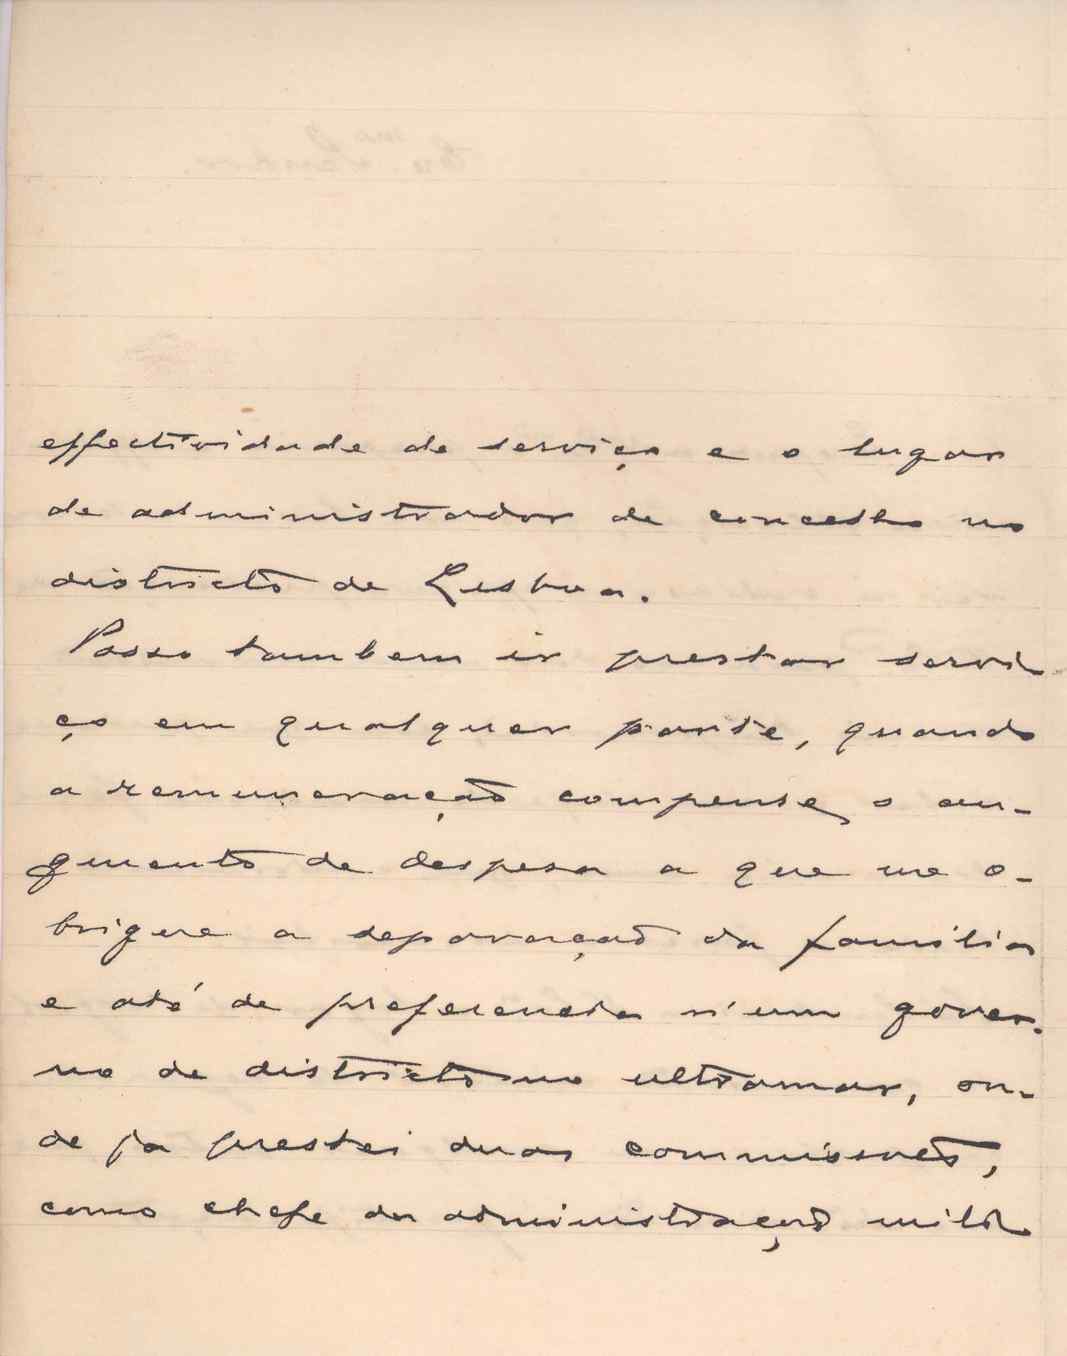 effectividade de serviço e o lugar
de administrador de concelho no
districto de Lisboa.
Posso tambem ir prestar servi
ço em qualquer parte, quando
a remuneração compense o au-
gmento de despesa a que me o-
brigue a separação da familia
e até de preferencia n'um gover-
no de districto no ultramar, on-
de ja prestei duas commissões,
como chefe da administração milit